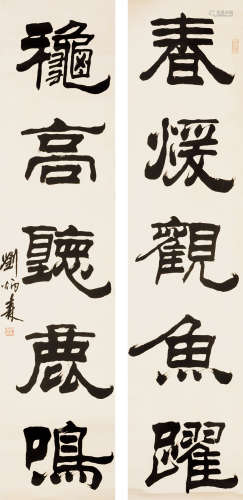 春煖觀魚躍
龝高聽鹿鳴
劉炳森